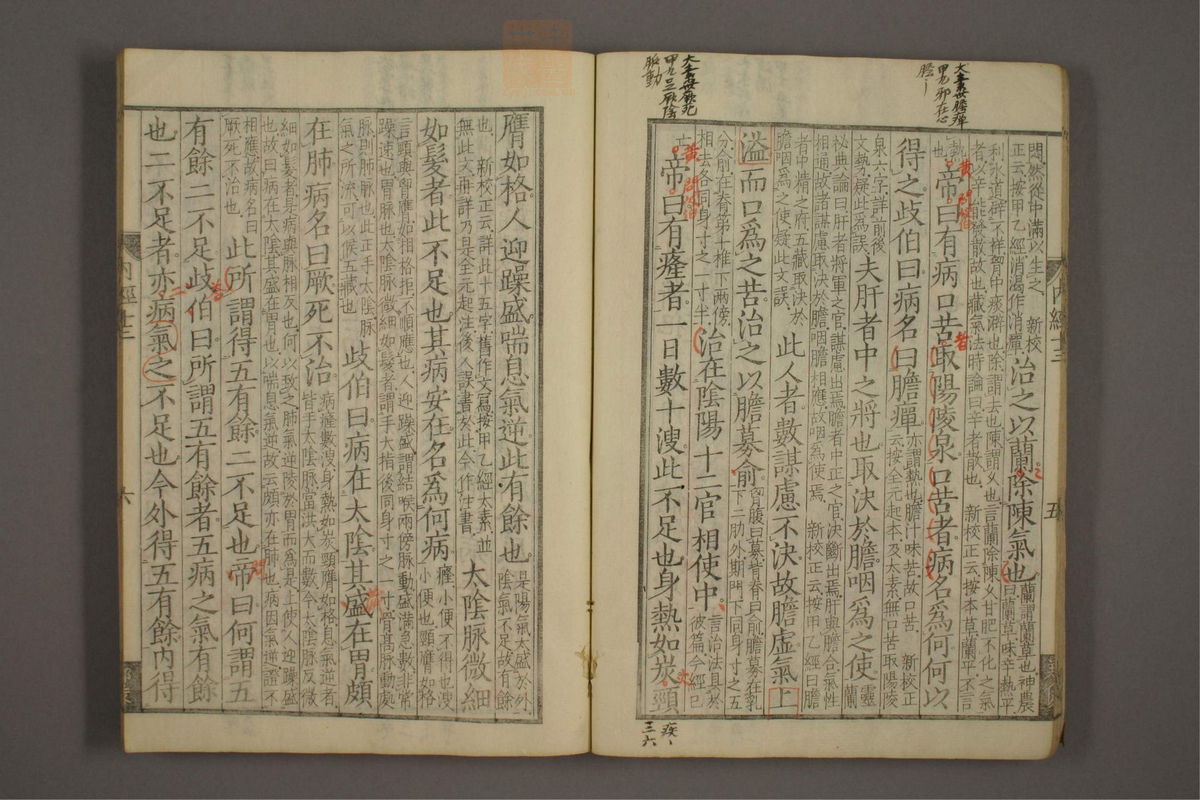 大素無膽癉
甲九邪在心
膽
內經十三
五
悶然從中滿以生之　新校正云按甲乙經消渴作消癉 治之以蘭除陳氣也 蘭謂蘭草也神農曰蘭草味辛熱平
利水道辟不祥胷中痰澼也除謂去也陳謂久也言蘭除陳久甘肥不化之氣者以辛能發散故也藏氣法時論曰辛者散也　新校正云按本草蘭平不言
熱也 帝曰有病口苦取陽陵泉口苦者病名爲何何以
得之歧伯曰病名曰膽癉 亦謂熱也膽汁味苦故口苦　新校正云按全元起本及太素無口苦取陽陵
泉六字詳前後文勢疑此爲誤 夫肝者中之將也取決於膽咽爲之使 靈蘭
祕典論曰肝者將軍之官謀慮出焉膽者中正之官決斷出焉肝與膽合氣性相通故諸謀慮取決於膽咽膽相應故咽爲使焉　新校正云按甲乙經曰膽
者中精之府五藏取決於膽咽爲之使疑此文誤 此人者數謀慮不決故膽虛氣上
溢而口爲之苦治之以膽募俞 胷腹曰募背脊曰俞膽募在乳下二肋外期門下同身寸之五
分俞在脊第十椎下兩傍相去各同身寸之一寸半 治在陰陽十二官相使中 言治法具於彼篇今經已
亡 帝曰有癃者一日數十溲此不足也身熱如炭頸
大素無厥死
脈動
三六
膺如格人迎躁盛喘息氣逆此有餘也 是陽氣太盛於外陰氣不足故有餘
也　新校正云詳此十五字舊作文寫按甲乙經太素並無此文再詳乃是全元起注後人誤書於此今作注書 太陰脈微細
如髮者此不足也其病安在名爲何病 癃小便不得也溲小便也頸膺如格
言頸與胷膺如相格拒不順應也人迎躁盛謂結喉兩傍脈動盛滿急數非常躁速也胃脈也太陰脈微細如髮者謂手大指後同身寸之一寸骨高脈動處
脈則肺脈也此正手太陰脈氣之所流可以候五藏也 歧伯曰病在太陰其盛在胃頗
在肺病名曰厥死不治 病癃數溲身熱如炭頸膺如格息氣逆者皆手太陰脈當洪大而數今太陰脈反微
細如髮者是病與脈相反也何以致之肺氣逆陵於胃而爲是上使人迎躁盛也故曰病在太陰其盛在胃也以喘息氣逆故云頗亦在肺也病因氣逆證不
相應故病名曰厥死不治也 此所謂得五有餘二不足也帝曰何謂五
有餘二不足歧伯曰所謂五有餘者五病之氣有餘
也二不足者亦病氣之不足也今外得五有餘內得
內經十三
六